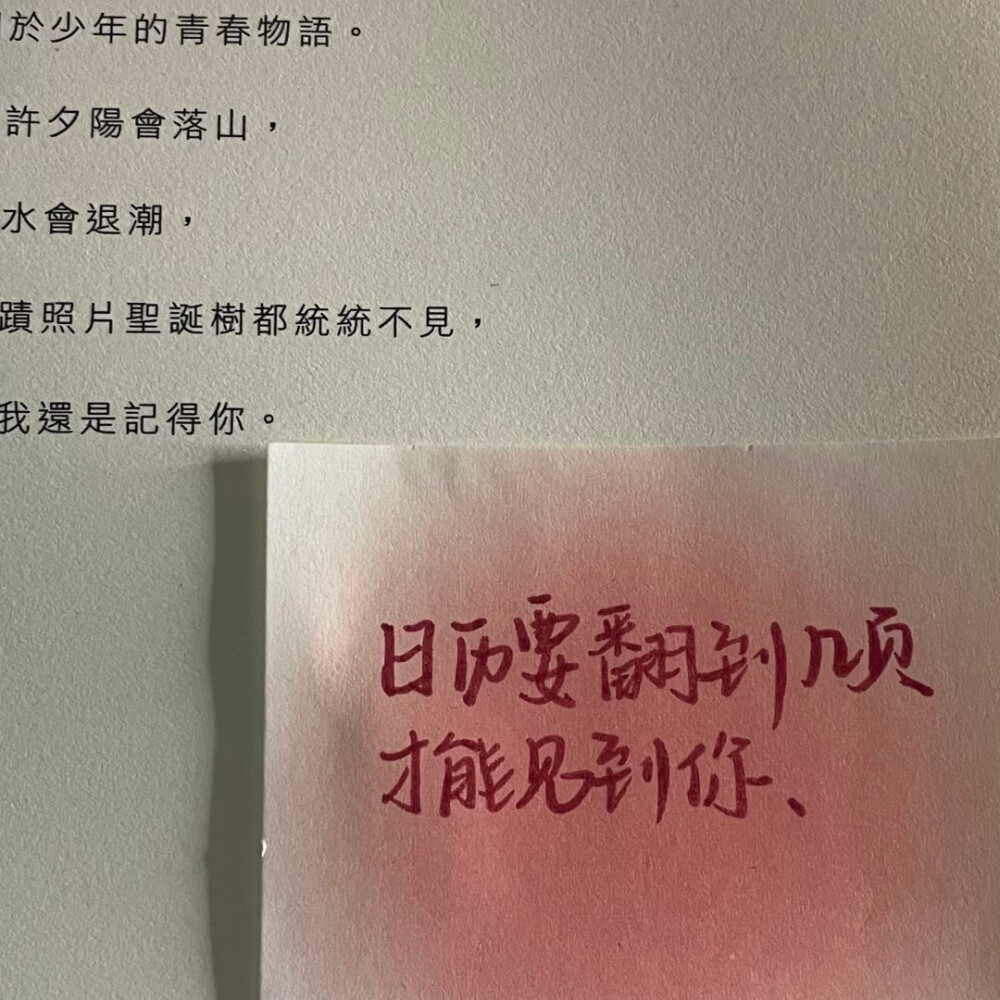 於少年的青春物語。
許夕陽會落山，
水會退潮，
蹟照片聖誕樹都統統不見，
我還是記得你。
日历要翻到几页
才能见到你、